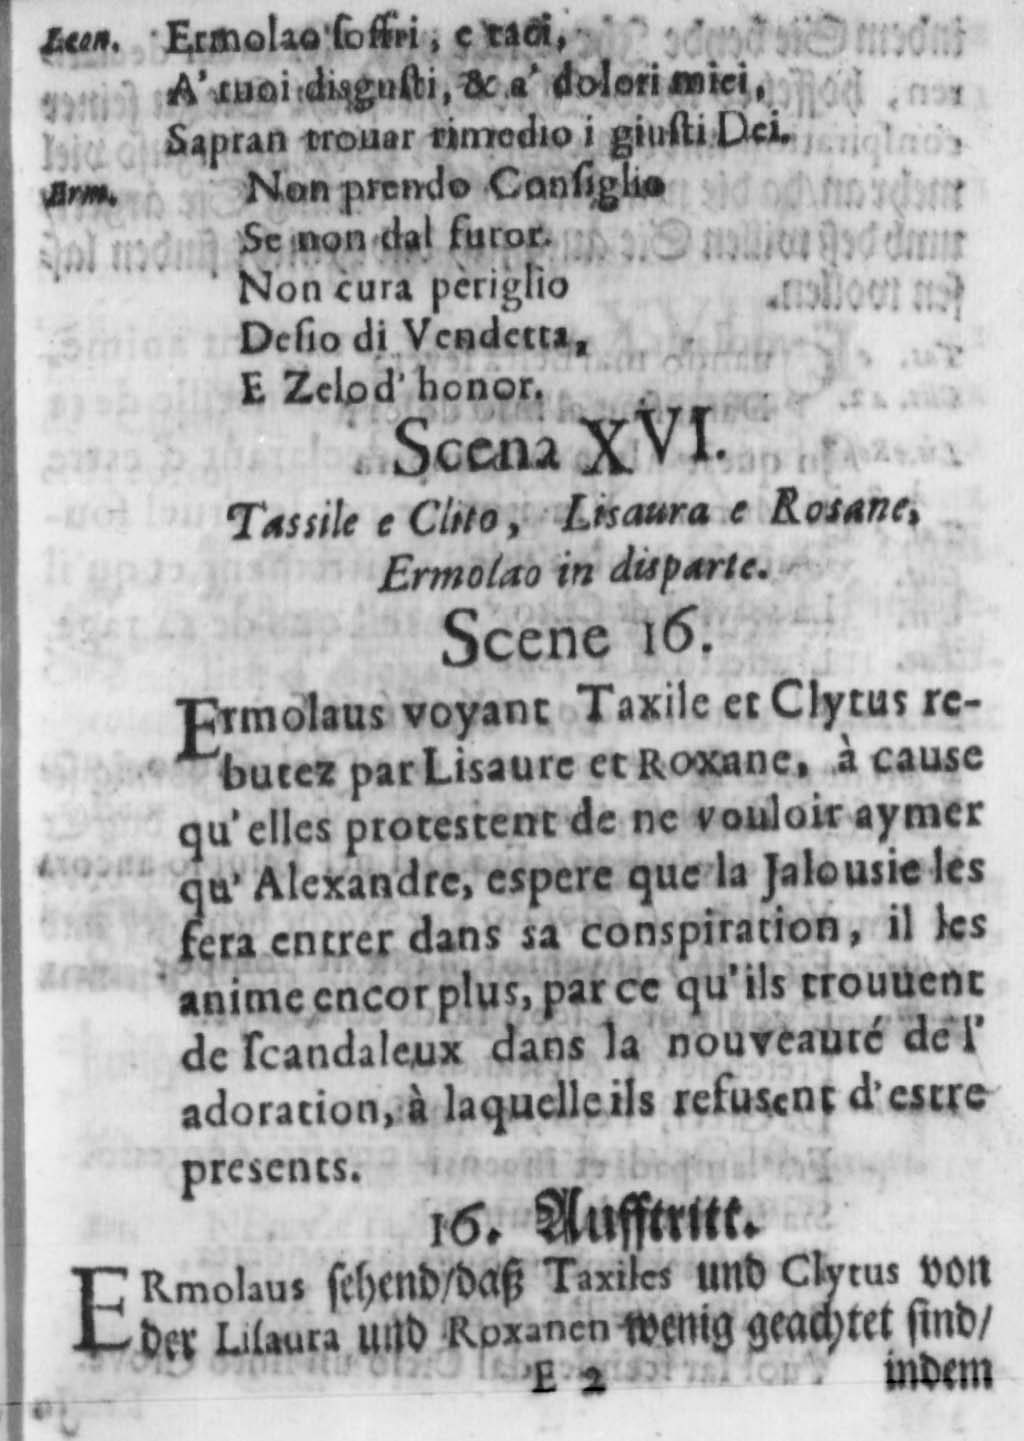 Leon. Ermolao soffri, e taci,
A' tuoi disgusti, & a' dolori miei,
Sapran trouar rimedio i giusti Dei.
Erm. Non prendo Consiglio
Se non dal furor.
Non cura pèriglio
Desio di Vendetta,
E Zelo d' honor.
Scena XVI.
Tassile e Clito, Lisaura e Rosane,
Ermolao in disparte.
Scene 16.
Ermolaus voyant Taxile et Clytus re-
butez par Lisaure et Roxane, à cause
qu' elles protestent de ne vouloir aymer
qu' Alexandre, espere que la Jalousie les
fera entrer dans sa conspiration, il les
anime encor plus, par ce qu' ils trouuent
de scandaleux dans la nouveauté de l'
adoration, à laquelle ils refusent d' estre
presents.
16. Aufftritt.
ERmolaus sehend/daß Taxiles und Clytus von
der Lisaura und Roxanen wenig geachtet sind/
E 2 indem